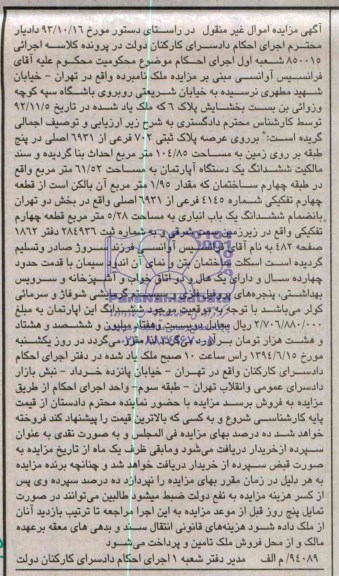 آگهی مزایده اموال غیر منقول در راستای دستور مورخ ۹۳/۱۰/۱۶ دادیار
محترم اجرای احکام دادسرای کارکنان دولت در پرونده کلاسه اجرائی
۸۵۰۰۱۵ شعبه اول اجرای احکام موضوع محکومیت محکوم علیه آقای
فرانسیس آوانسی مبنی بر مزایده ملک نامبرده واقع در تهران - خیابان
شهید مطهری نرسیده به خیابان شریعتی روبروی باشگاه سپه کوچه
وزوائی بن بست بخشایش پلاک ۶ که ملک یاد شده در تاریخ ۹۲/۱۱/۵
توسط کارشناس محترم دادگستری به شرح زیر ارزیابی و توصیف اجمالی
گریده است: برروی عرصه پلاک ثبتی ۷۰۲ فرعی از ۶۹۳۱ اصلی در پنج
طبقه بر روی زمین به مساحت ۱۰۴/۸۵ متر مربع احداث بنا گردیده و سند
مالکیت ششدانگ یک دستگاه آپارتمان به مساحت ۶۱/۵۲ متر مربع واقع
در طبقه چهارم ساختمان که مقدار ۱/۹۵ متر مربع آن بالکن است از قطعه
چهارم تفکیکی شماره ۴۱۴۵ فرعی از ۶۹۳۱ اصلی واقع در بخش دو تهران
بانضمام ششدانگ یک باب انباری به مساحت ۵/۲۸ متر مربع قطعه چهارم
تفکیکی واقع در زیرزمین سمت شرقی و به شماره ثبت ۲۸۴۹۳۶ دفتر ۱۸۶۲
صفحه ۴۸۲ به نام آقای فرانسیس آوانسی فرزند سروژ صادر وتسلیم
گردیده است اسکلت ساختمان بتن و نمای آن اندود سیمان با قدمت حدود
چهارده سال و دارای یک هال و دو اتاق خواب و آشپزخانه و سرویس
بهداشتی، پنجره‌های پروفیل فلزی و سیستم گرمایشی شوفاژ و سرمائی
کولر می‌باشد با توجه به موقعیت موجود ششدانگ این آپارتمان به مبلغ
۲/۷۰۶/۸۸۰/۰۰۰ ریال معادل دویست وهفتاد میلیون و ششصد و هشتاد
و هشت هزار تومان برآورد می‌گردد لذا مقرر می‌گردد در روز یکشنبه
مورخ ۱۳۹۴/۶/۱۵ راس ساعت ۱۰ صبح ملک یاد شده در دفتر اجرای احکام
دادسرای کارکنان واقع در تهران - خیابان پانزده خرداد - نبش بازار
دادسرای عمومی وانقلاب تهران - طبقه سوم - واحد اجرای احکام از طریق
مزایده به فروش برسد مزایده با حضور نماینده محترم دادستان از قیمت
پایه کارشناسی شروع و به کسی که بالاترین قیمت را پیشنهاد کند فروخته
خواهد شد ده درصد بهای مزایده فی المجلس و به صورت نقدی به عنوان
سپرده ازخریدار دریافت می‌شود ومابقی ظرف یک ماه از تاریخ مزایده به
صورت قبض سپرده از خریدار دریافت خواهد شد و چنانچه برنده مزایده
به هر دلیل در زمان مقرر بهای مزایده را نپردازد ده درصد سپرده وی پس
از کسر هزینه مزایده به نفع دولت ضبط میشود طالبین می‌توانند در صورت
تمایل پنج روز قبل از موعد مزایده به این اجرا مراجعه تا ترتیب بازدید آنان
از ملک داده شود هزینه‌های قانونی انتقال سند و بدهی های معقه برعهده
مالک و از محل فروش ملک تامین و پرداخت می‌شود
۹۴۰۸۹/م الف مدیر دفتر شعبه ۱ اجرای احکام دادسرای کارکنان دولت